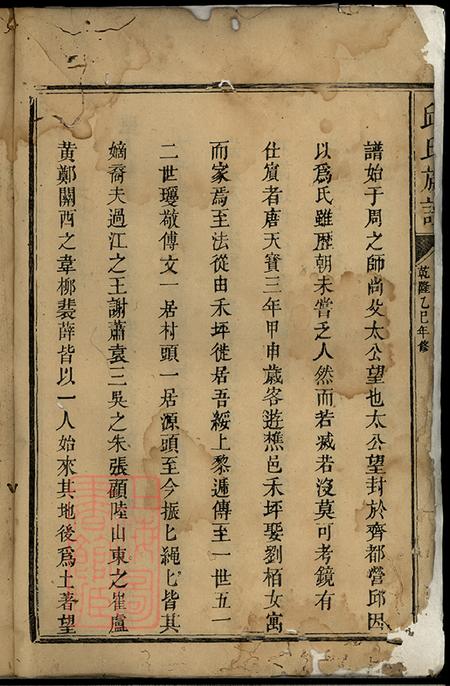 邱氏族譜
乾隆乙巳年修
譜始于周之師尚父太公望也太公望封於齊都營邱因
以爲氏雖歷朝未嘗乏人然而若滅若沒莫可考鏡有
仕賔者唐天寳三年甲申歳客遊樵邑禾坪娶劉栢女寓
而家焉至法從由禾坪徙居吾綏上黎遞傳至一世五一
二世瓊敬傅文一居村頭一居源頭至今振匕繩匕皆其
嫡裔夫過江之王謝蕭袁三吳之朱張顧陸山東之崔盧
黄鄭關西之韋柳裴薛皆以一人始來其地後爲土著望